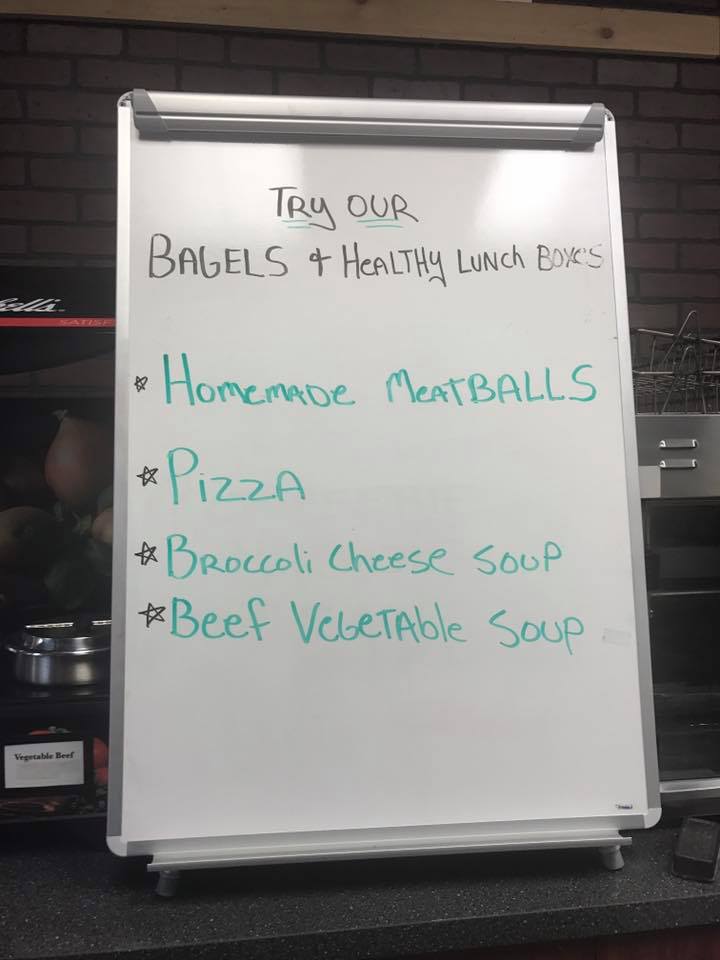 TRY OUR
BAGELS & HEALTHY LUNCH BOXES
☆ HOMEMADE MEATBALLS
☆ PIZZA
☆ BROCCOLI CHEESE SOUP
☆ BEEF VEGETABLE SOUP
Vegetable Beef